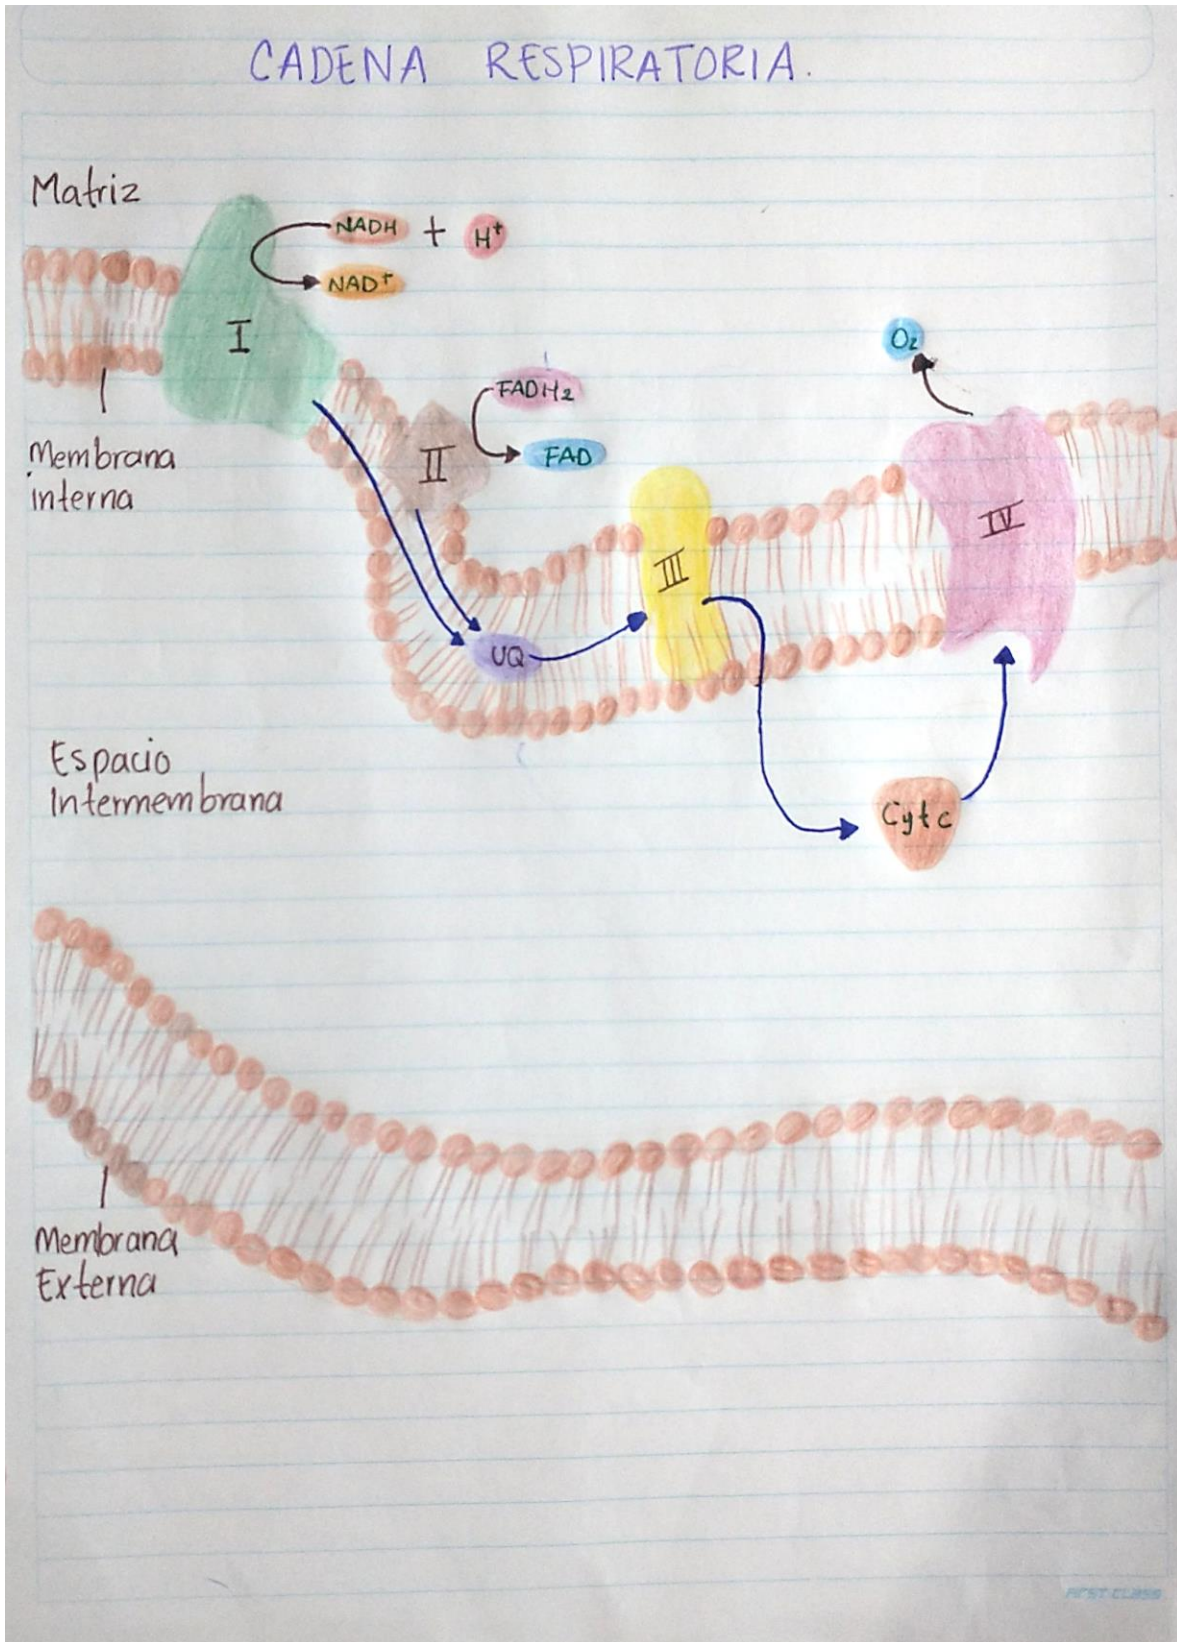 CADENA RESPIRATORIA.
Matriz
NADH + H⁺
NAD⁺
I
O₂
FADH₂
II
FAD
Membrana
interna
IV
III
UQ
Espacio
Intermembrana
Cyt c
Membrana
Externa
FIRST CLASS